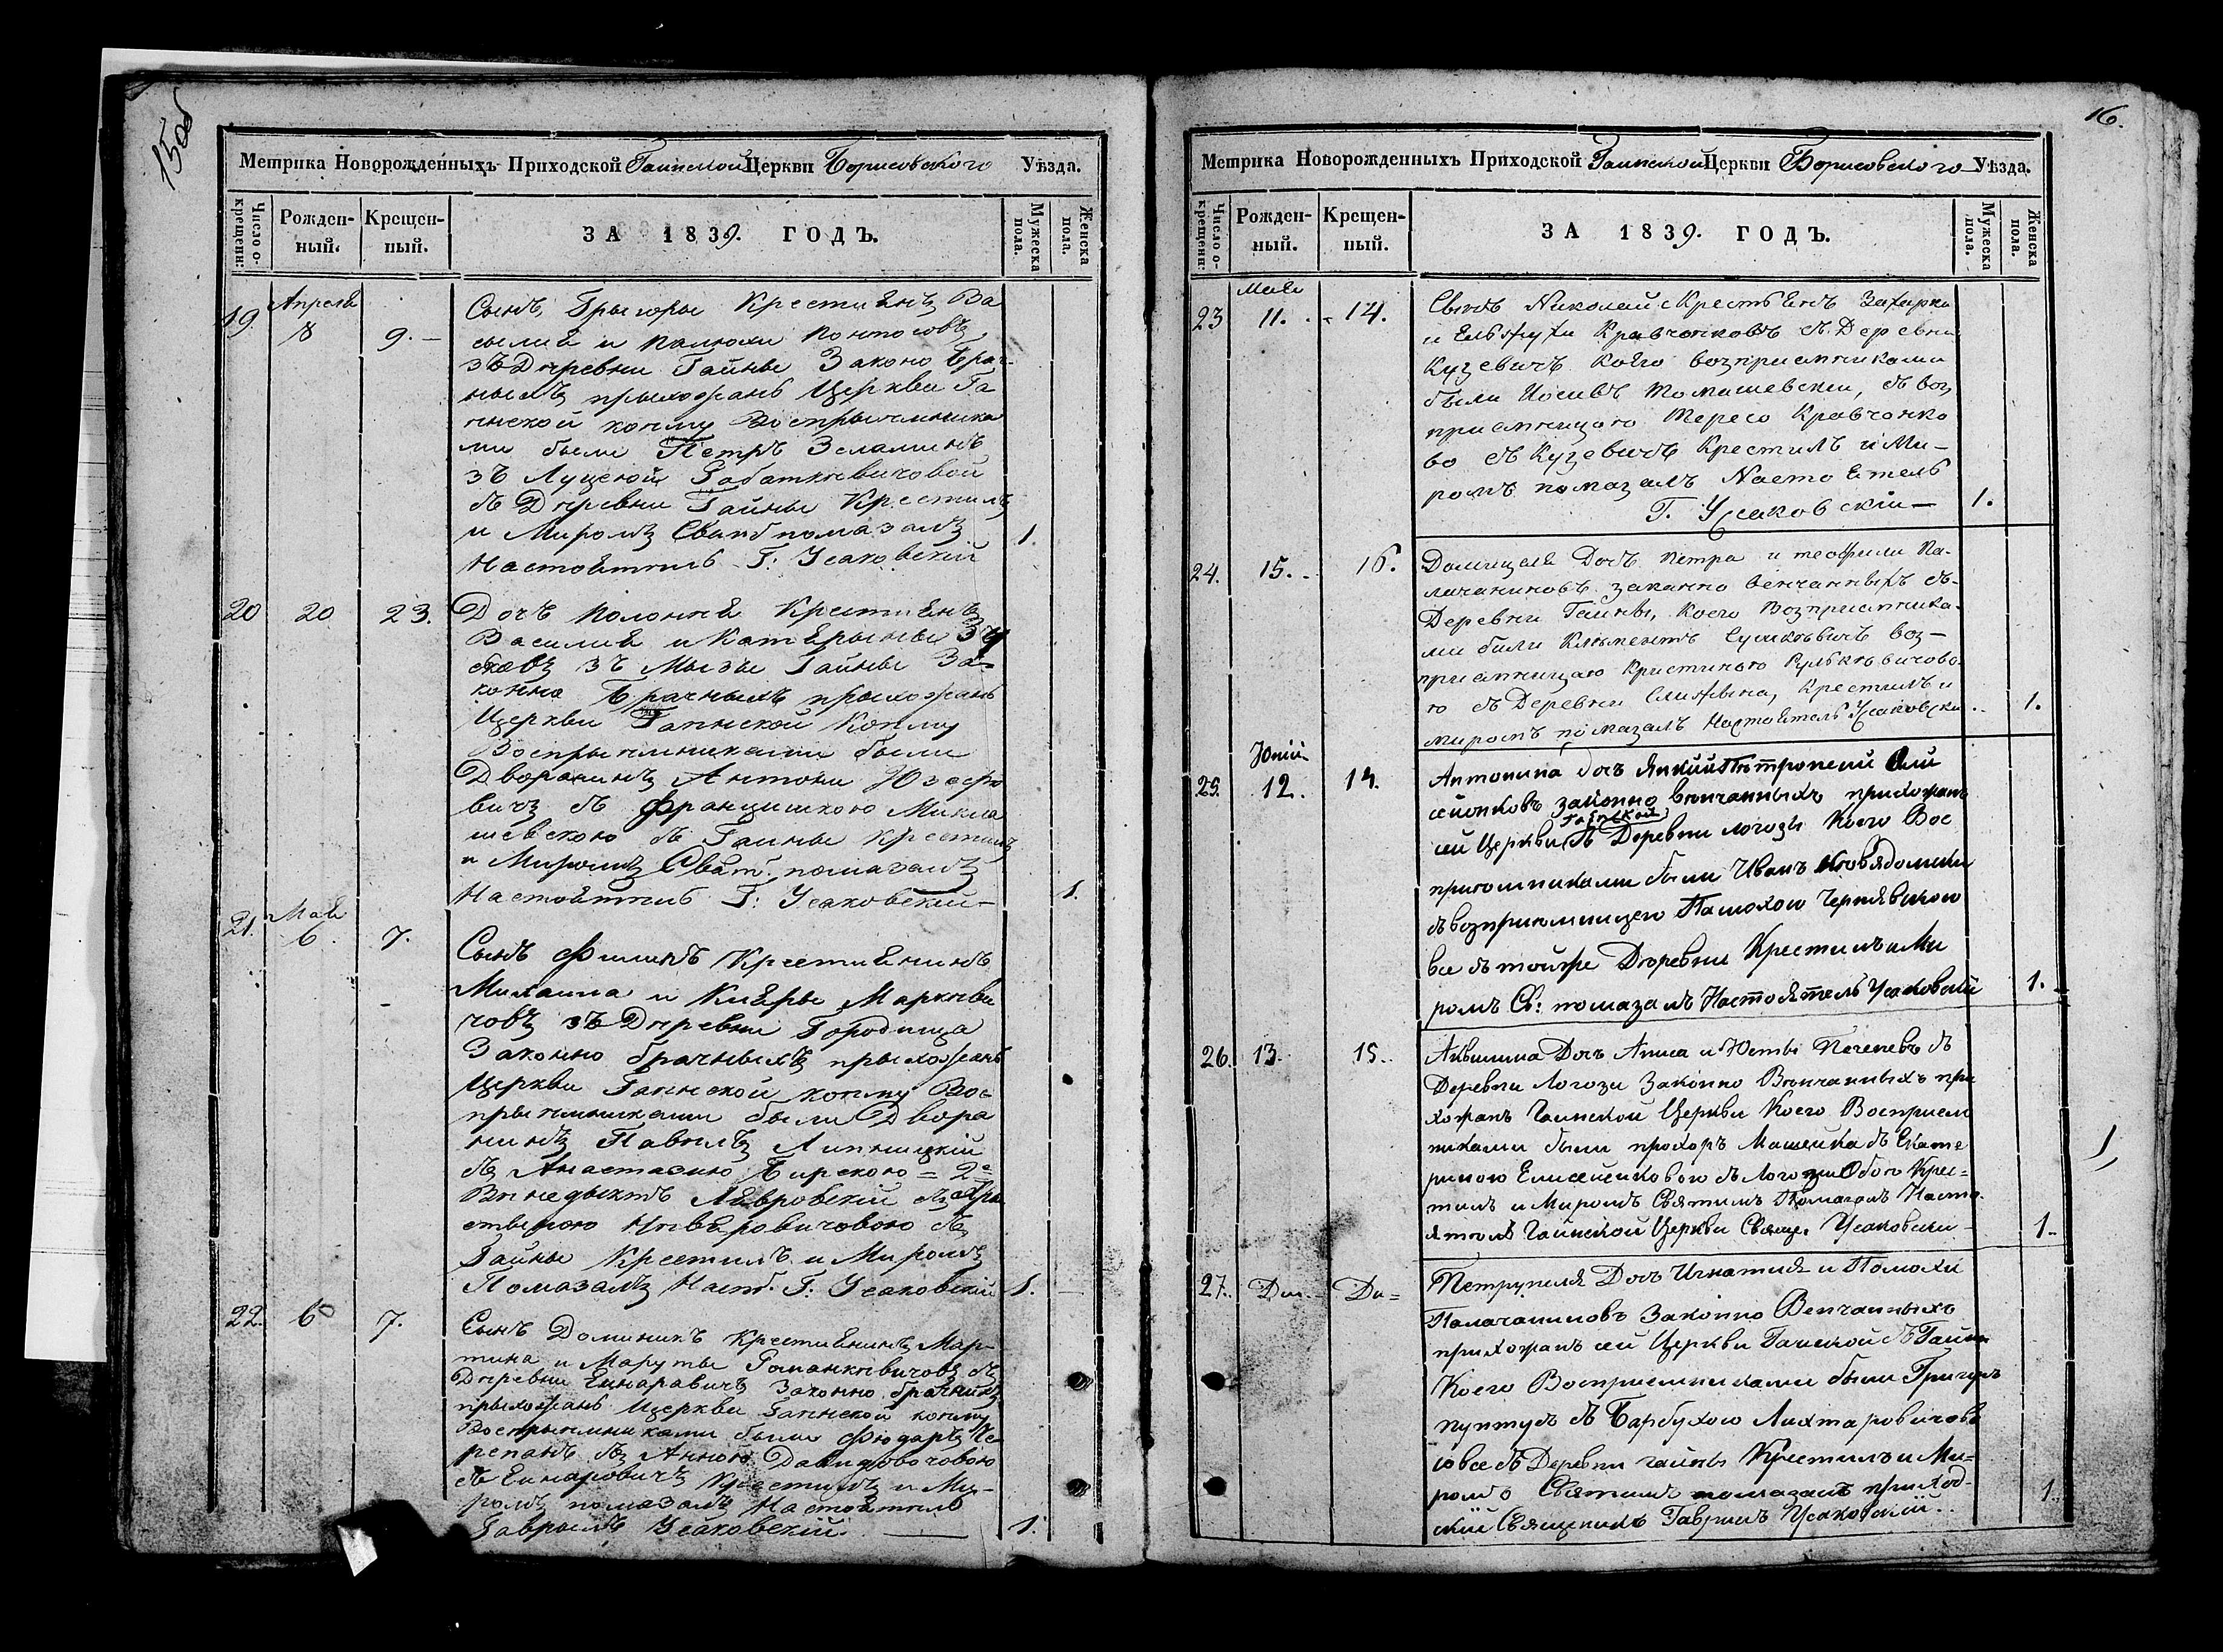 15об
Метрика Новорожденныхъ Приходской Гаинской Церкви Борисовского Уѣзда.
Число о-
крещенн:
Рожден-
ный.
Крещен-
ный.
ЗА 1839. ГОДЪ.
Мужеска
пола.
Женска
пола.
19. Апреля 8 9. Сынъ Грыгоры Крестиянъ Ва
силия и Палюхи
зъ Деревни Гайны Законо брач-
ныхъ прыхожанъ Церкви Га
инской коему Воспрыемника
ми были Петръ
зъ Луцеюй
въ Деревни Гайны Крестилъ
и Миромъ Свят помазалъ 1.
Настоятель Г: Усаковский
20 20 23. Дочъ Полония Крестиянъ
Василия и Катерыны
зъ Мызы Гайны За-
конно Брачныхъ прыхожанъ
Церкви Гаинской Коему
Воспрыемниками были
Дворанинъ Антони Юзефо
вичъ въ Францишкою Микла
шевскою въ Гаины Крестилъ
и Миромъ Сват. помазалъ
Настоятель Г: Усаковский 1.
21. Мая 6. 7. Сынъ Филипъ Крестиянинъ
Михаила и Киеры Маркеви
човъ зъ Деревни Городища
Законно брачныхъ прыхожанъ
Церкви Гаинской коему Вос
прыемниками были Двора
нинъ Павелъ Липницкий
въ Анастазию Бирскою = 2е
Венедыктъ Лавровский
въ
Гайны Крестилъ и Миромъ
Помазалъ Наст. Г: Усаковский 1.
22. 6 7. Сынъ Доминикъ Крестиянинъ Мар-
тина и Маруты Романкевичовъ въ
Деревни Законно брачныхъ
прыхожанъ Церкви Гаинской коему
Воспрыемниками были Фюдаръ Че
репанъ въ Анною Давидовочовою
въ Крестилъ и Ми-
ромъ помазалъ Настоятель
Гаврыилъ Усаковский. 1.
16.
Метрика Новорожденныхъ Приходской Гаинской Церкви Борисовского Уѣзда.
Число о-
крещенн:
Рожден-
ный.
Крещен-
ный.
ЗА 1839. ГОДЪ.
Мужеска
пола.
Женска
пола.
23 Мая 11. 14. Сынъ Николай Крестьянъ Захарка
и Ельжухи Кравчонковъ въ Деревни
Кузевичъ коего возприемниками
были Иосивъ Томашевски, въ воз
приемницою Тересо Кравчонко
во въ Кузевичъ Крестилъ и Ми-
ромъ помазалъ Настоятель
Г. Усаковский 1.
24. 15. 16. Доминцеля Дочъ Петра и теофили Па-
лачаниновъ законно венчанныхъ въ
Деревни Гаины, коего Возприемника-
ми били Климентъ Сушкевичъ воз-
приемницаю Кристиною
ю въ Деревни Крестилъ и
миромъ помазалъ Настоятель Усаковски 1.
25. Юний 12. 14. Антонина дочъ
законно венчанныхъ прихожанъ
Гаинской
сей Церкви въ Деревни логозы Коего Вос
приемниками были Иванъ
въ возприемницею Палюхою Чернявскою
все въ тойже Деревни Крестилъ и Ми
ромъ Св: помазалъ Настоятель Усаковский 1.
26. 13. 15. Дочъ и Юсты Печеневъ въ
Деревни Логози Законно Венчанныхъ при
хожанъ Гаинской Церкви Коего Восприем
никами были прохоръ Машейка въ Екате
риною Елисеенковою въ Крес=
тилъ и Миромъ Святимъ Помазалъ Насто
ятель Гаинской Церкви Свящ. Усаковски 1.
27. До. До= Петрунеля Дочъ Игнатия и Полюхи
Палачаниновъ Законно Венчанныхъ
прихожанъ сей Церкви Гаиской въ Гаин
Коего Восприемниками были Григоръ
пунтусъ въ Барбухою Лихтаровичово
ю все въ Деревни гаины Крестилъ и Ми=
ромъ Святимъ помазалъ приход-
ский Священникъ Гавриилъ Усаковский. 1.